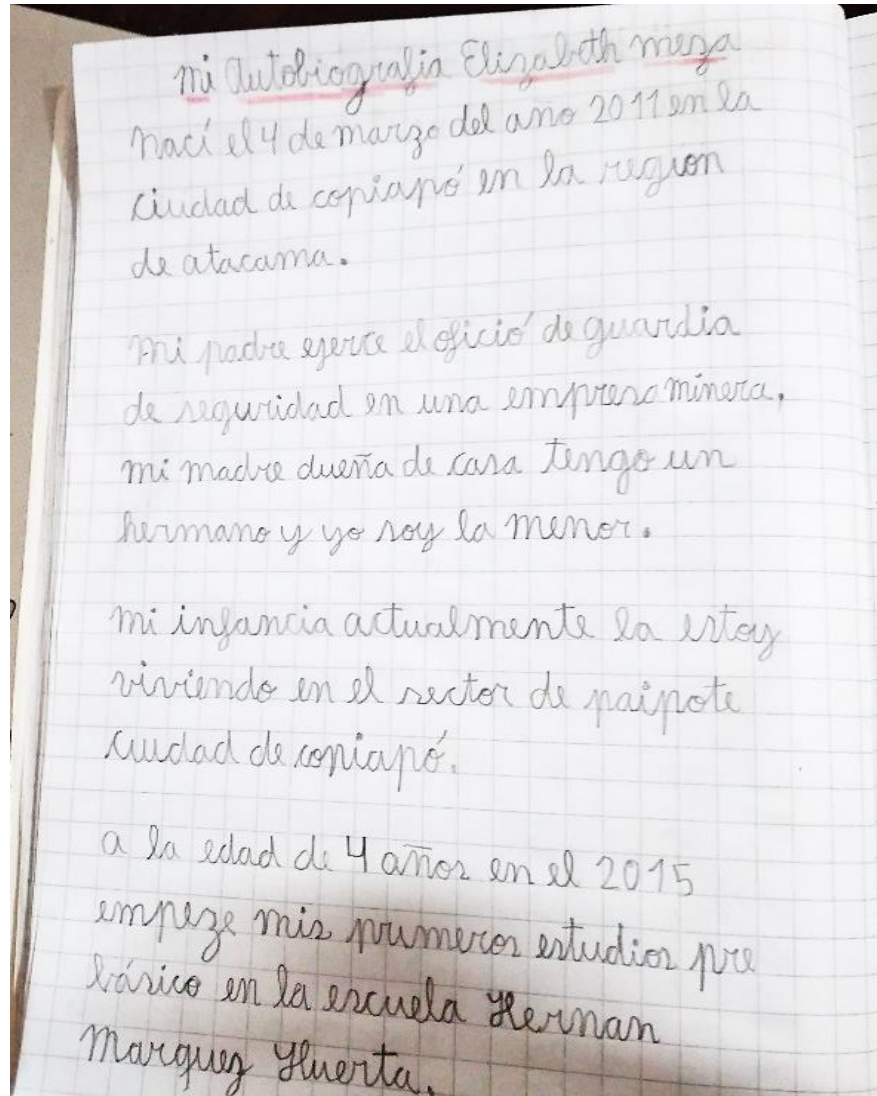 mi Autobiografia Elizabeth meza
nací el 4 de marzo del año 2011 en la
ciudad de copiapó en la region
de atacama.
mi padre ejerce el ofició de guardia
de seguridad en una empresa minera,
mi madre dueña de casa tengo un
hermano y yo soy la menor.
mi infancia actualmente la estoy
viviendo en el sector de paipote
ciudad de copiapó.
a la edad de 4 años en el 2015
empeze mis primeros estudios pre
básico en la escuela Hernan
Marquez Huerta.